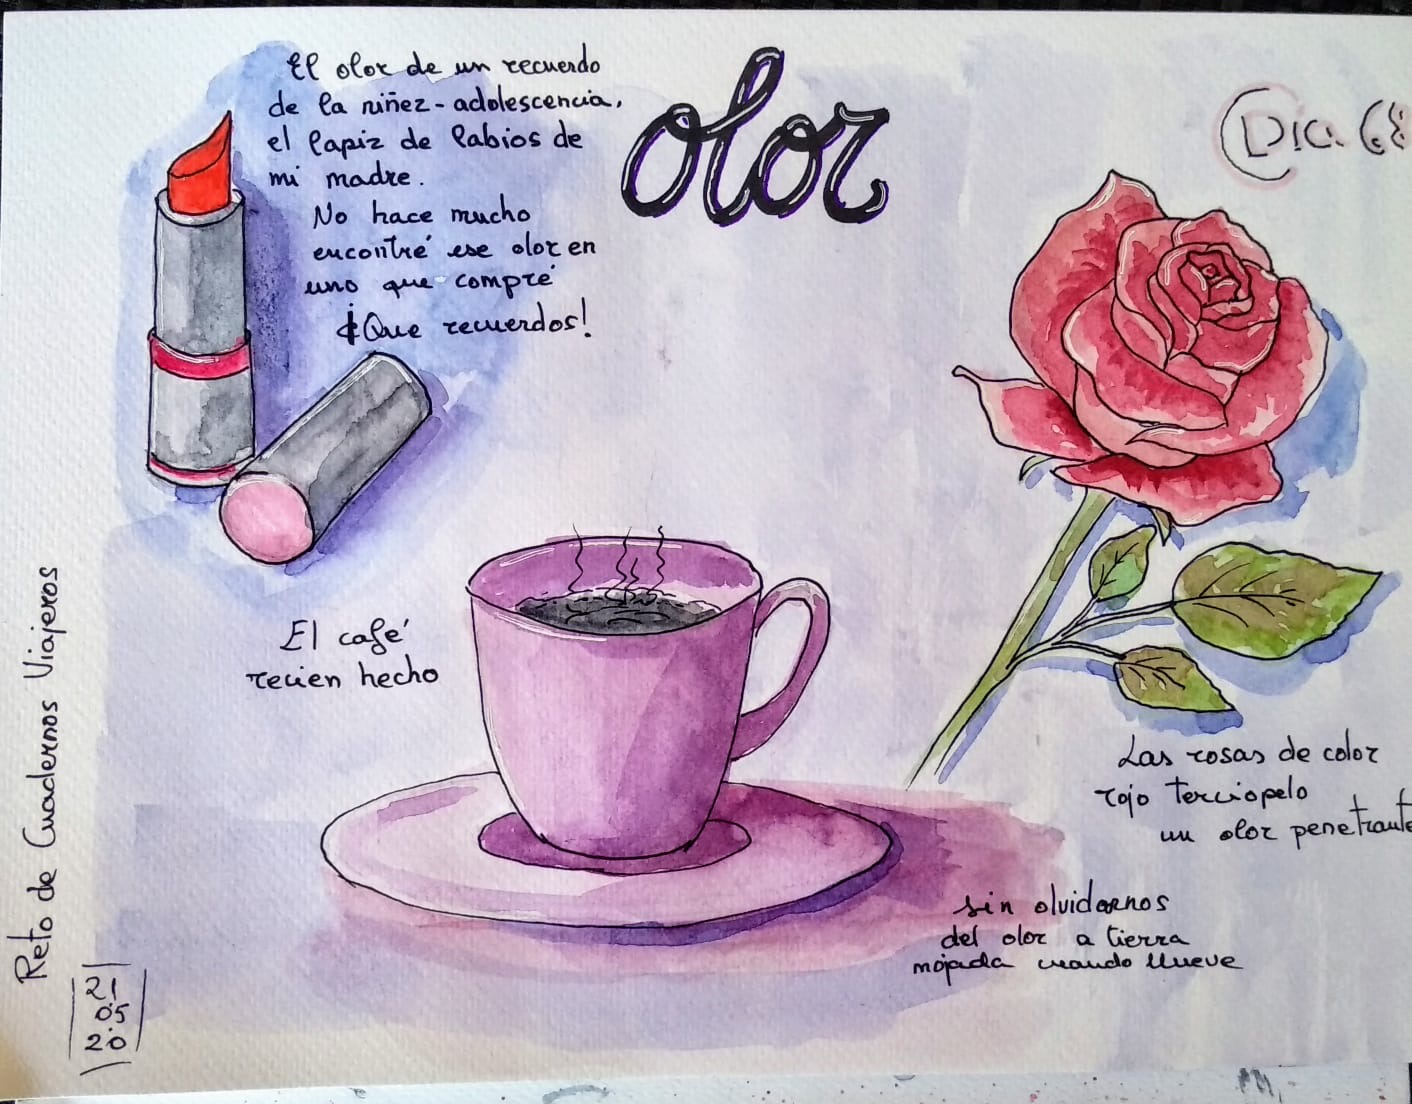 El olor de un recuerdo
de la niñez-adolescencia,
el lapiz de labios de
mi madre.
No hace mucho
encontré ese olor en
uno que compré
¡Que recuerdos!
olor
Dia 68
El café
recien hecho
Las rosas de color
rojo terciopelo
un olor penetrante
sin olvidarnos
del olor a tierra
mojada cuando llueve
Reto de Cuadernos Viajeros
21
05
20